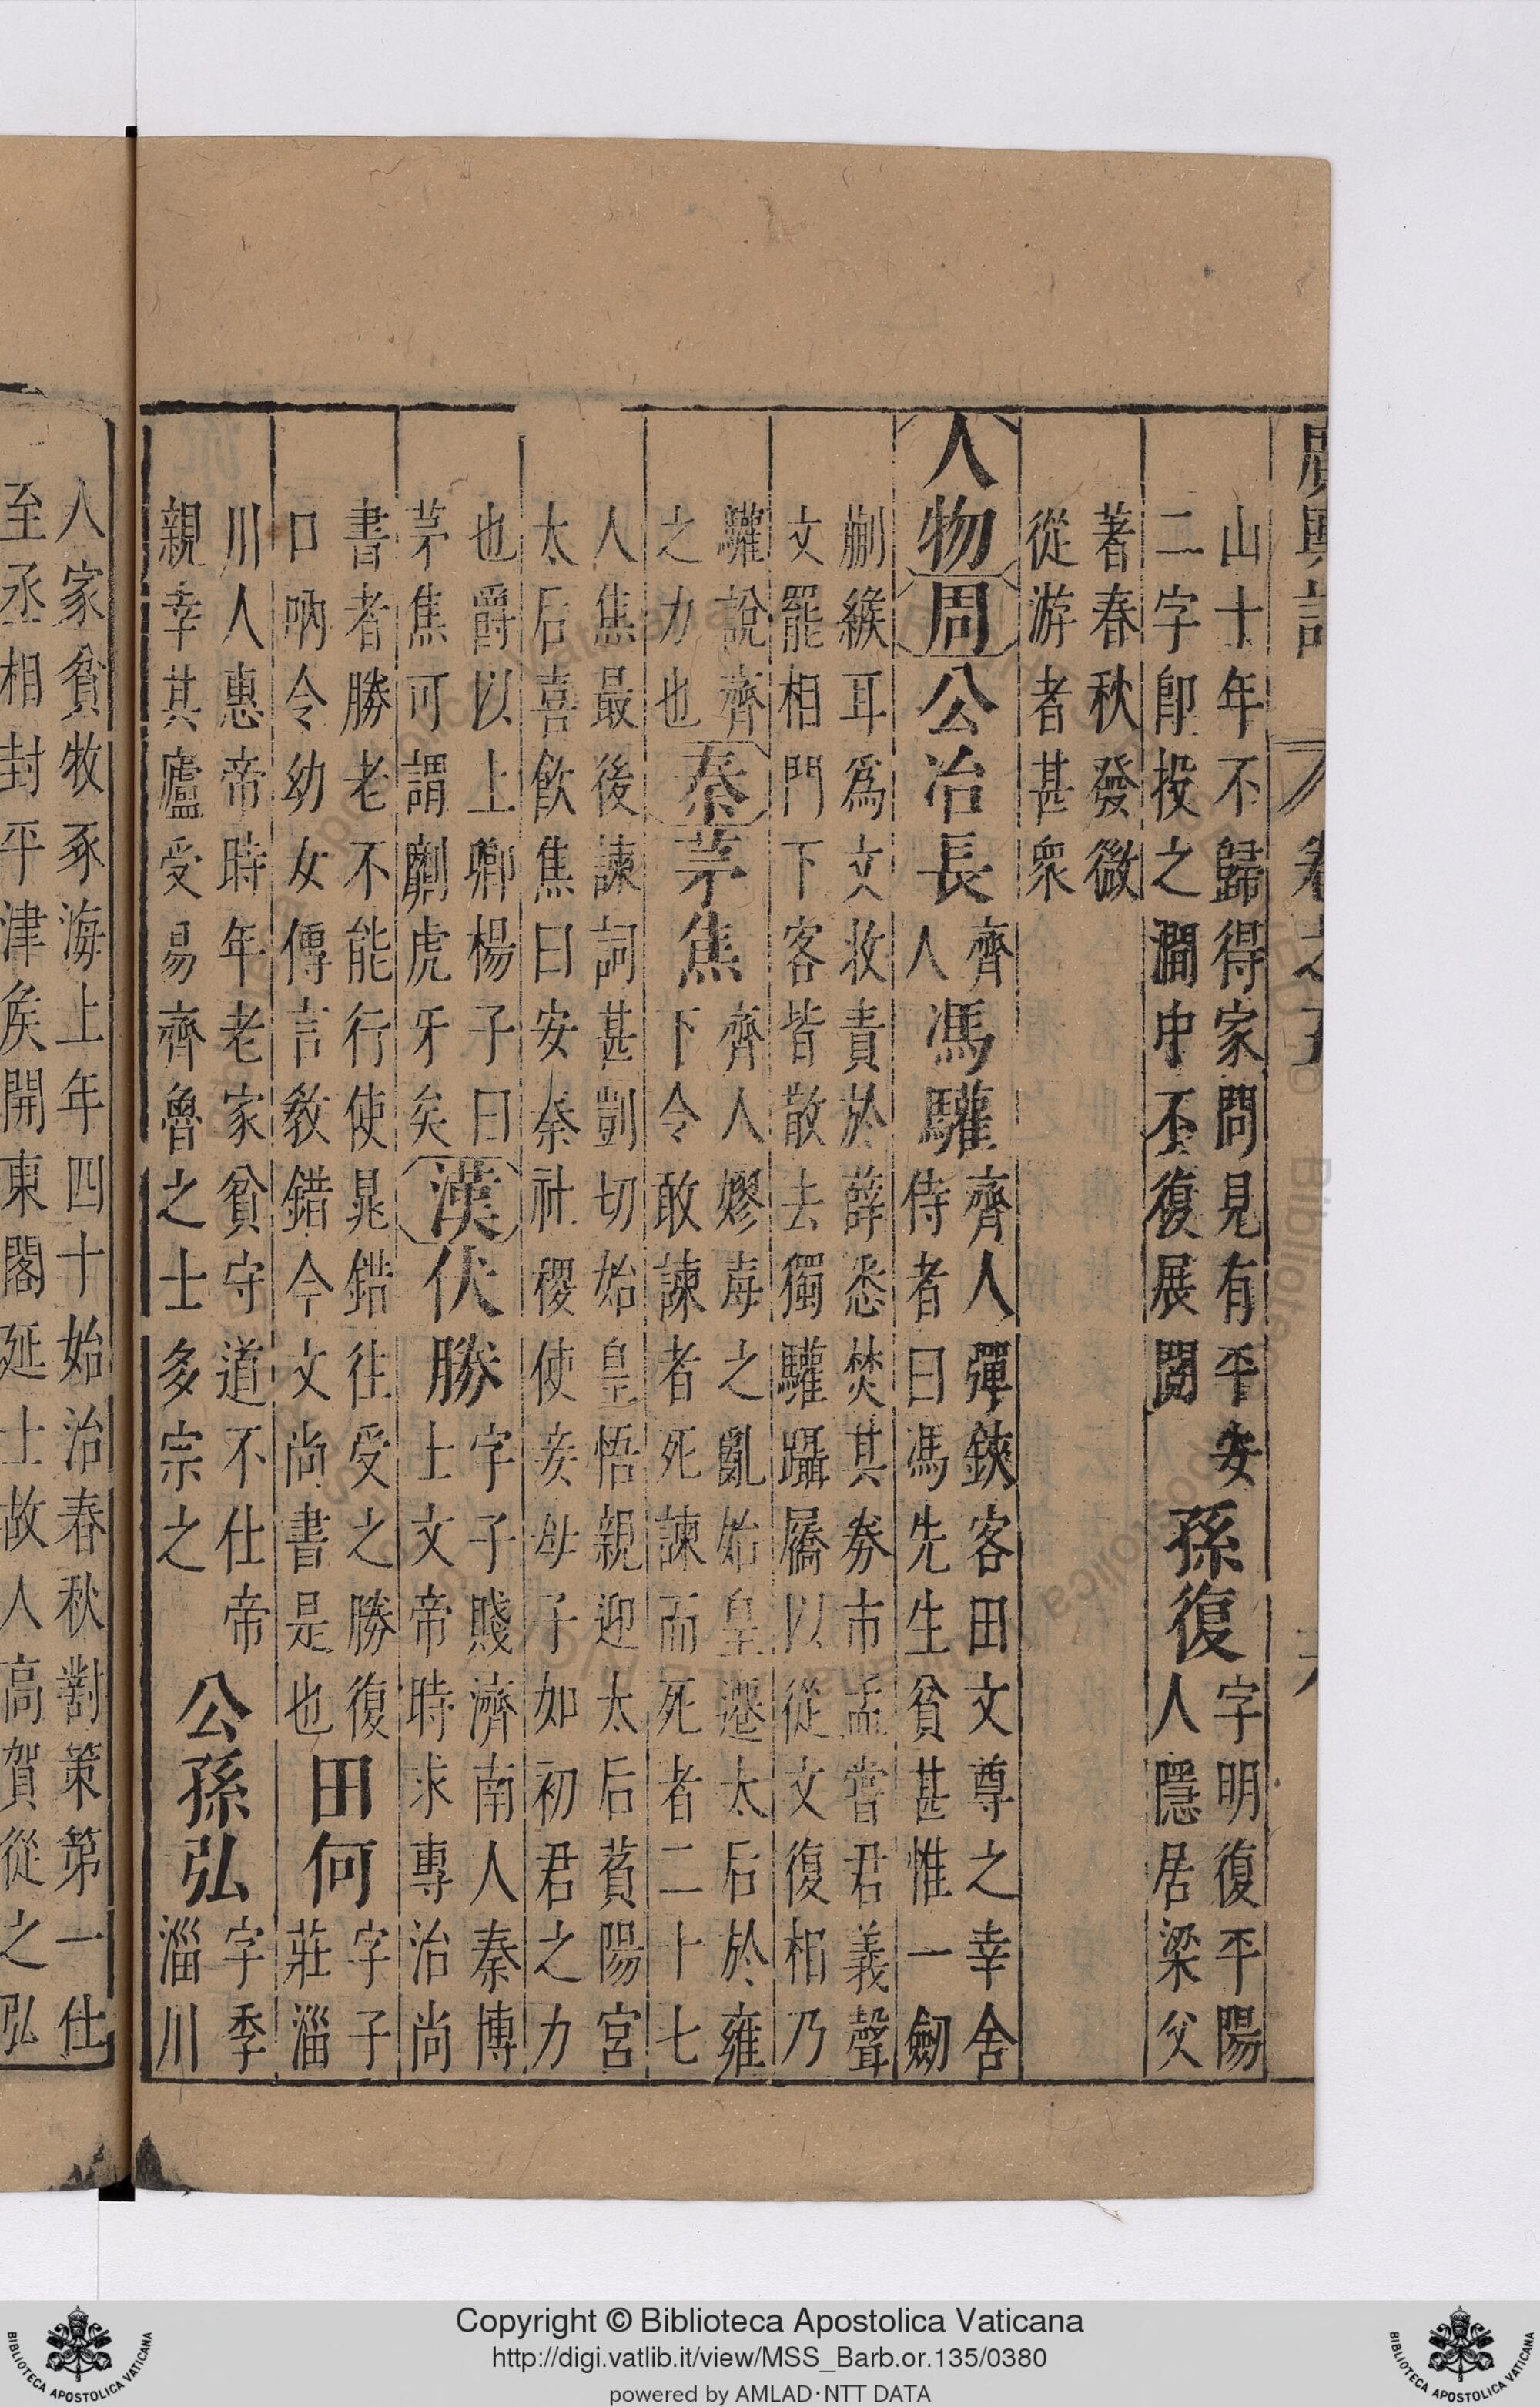 廣輿記 卷之
山十年不歸得家問見有平安
二字卽投之澗中不復展閱
孫復
字明復平陽
人隱居梁父
著春秋發微
從游者甚衆
人物
周
公冶長
齊
人
馮驩
齊人彈鋏客田文尊之幸舍
侍者曰馮先生貧甚惟一劒
蒯緱耳爲文收責於薛悉焚其券市孟嘗君義聲
文罷相門下客皆散去獨驩躡屩以從文復相乃
驩說齊
之力也
秦
茅焦
齊人嫪毐之亂始皇遷太后於雍
下令敢諫者死諫而死者二十七
人焦最後諫詞甚剴切始皇悟親迎太后萯陽宮
太后喜飮焦曰安秦社稷使妾母子如初君之力
也爵以上卿楊子曰
茅焦可謂劘虎牙矣
漢
伏勝
字子賤濟南人秦博
士文帝時求專治尚
書者勝老不能行使晁錯往受之勝復
口吶令幼女傳言敎錯今文尚書是也
田何
字子
莊淄
川人惠帝時年老家貧守道不仕帝
親幸其廬受易齊魯之士多宗之
公孫弘
字季
淄川
人家貧牧豕海上年四十始治春秋對策第一仕
至丞相封平津矦開東閣延士故人高賀從之弘
Copyright © Biblioteca Apostolica Vaticana
http://digi.vatlib.it/view/MSS_Barb.or.135/0380
powered by AMLAD·NTT DATA
BIBLIOTECA APOSTOLICA VATICANA
BIBLIOTECA APOSTOLICA VATICANA